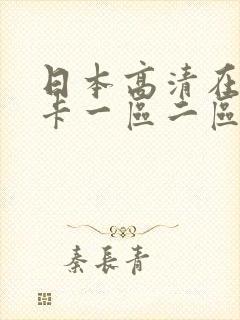 日本高清在
卡一區二區
秦長青